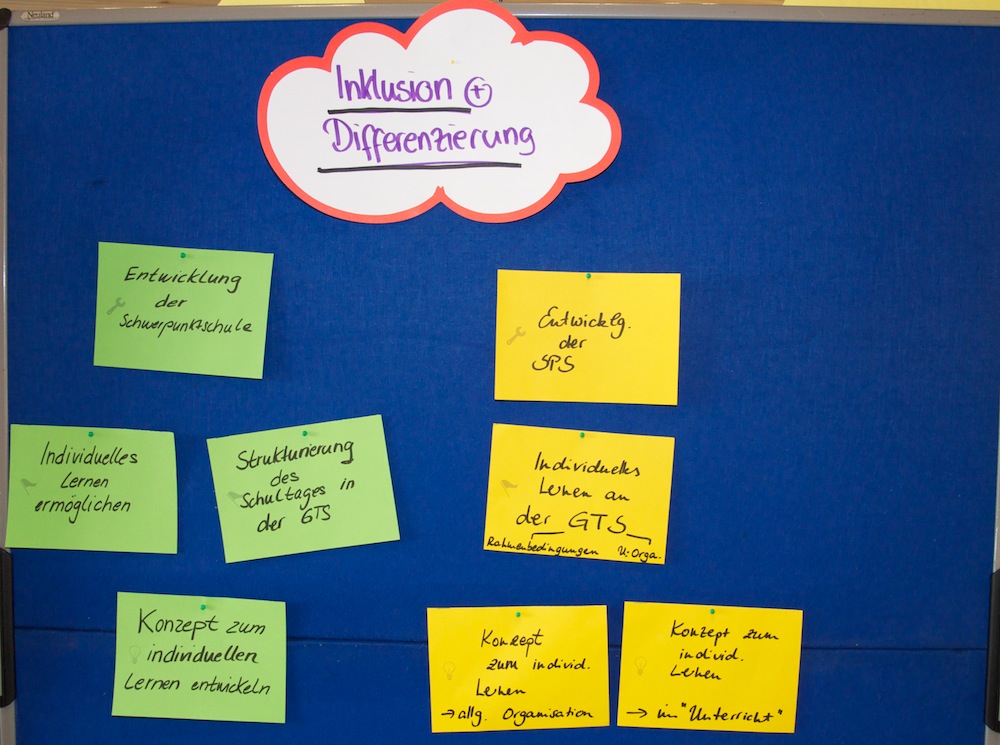 Neuland
Inklusion +
Differenzierung
Entwicklung
der
Schwerpunktschule
Entwicklg.
der
SPS
Individuelles
Lernen
ermöglichen
Strukturierung
des
Schultages in
der GTS
Individuelles
Lernen an
der GTS
Rahmenbedingungen U-Orga.
Konzept zum
individuellen
Lernen entwickeln
Konzept
zum individ.
Lernen
→ allg. Organisation
Konzept zum
individ.
Lernen
→ im "Unterricht"